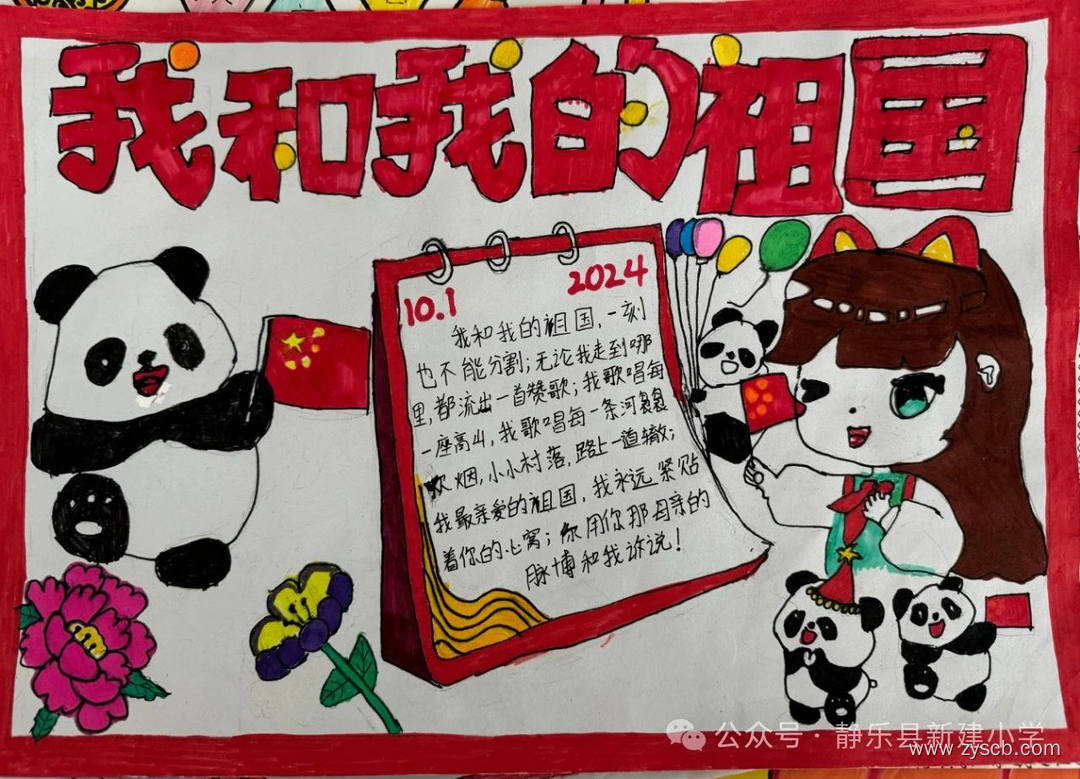 我和我的祖国
10.1 2024
我和我的祖国,一刻
也不能分割;无论我走到哪
里,都流出一首赞歌;我歌唱每
一座高山,我歌唱每一条河袅袅
炊烟,小小村落,路上一道辙;
我最亲爱的祖国,我永远紧贴
着你的心窝;你用你那母亲的
脉博和我诉说!
公众号·静乐县新建小学
www.zyscb.com